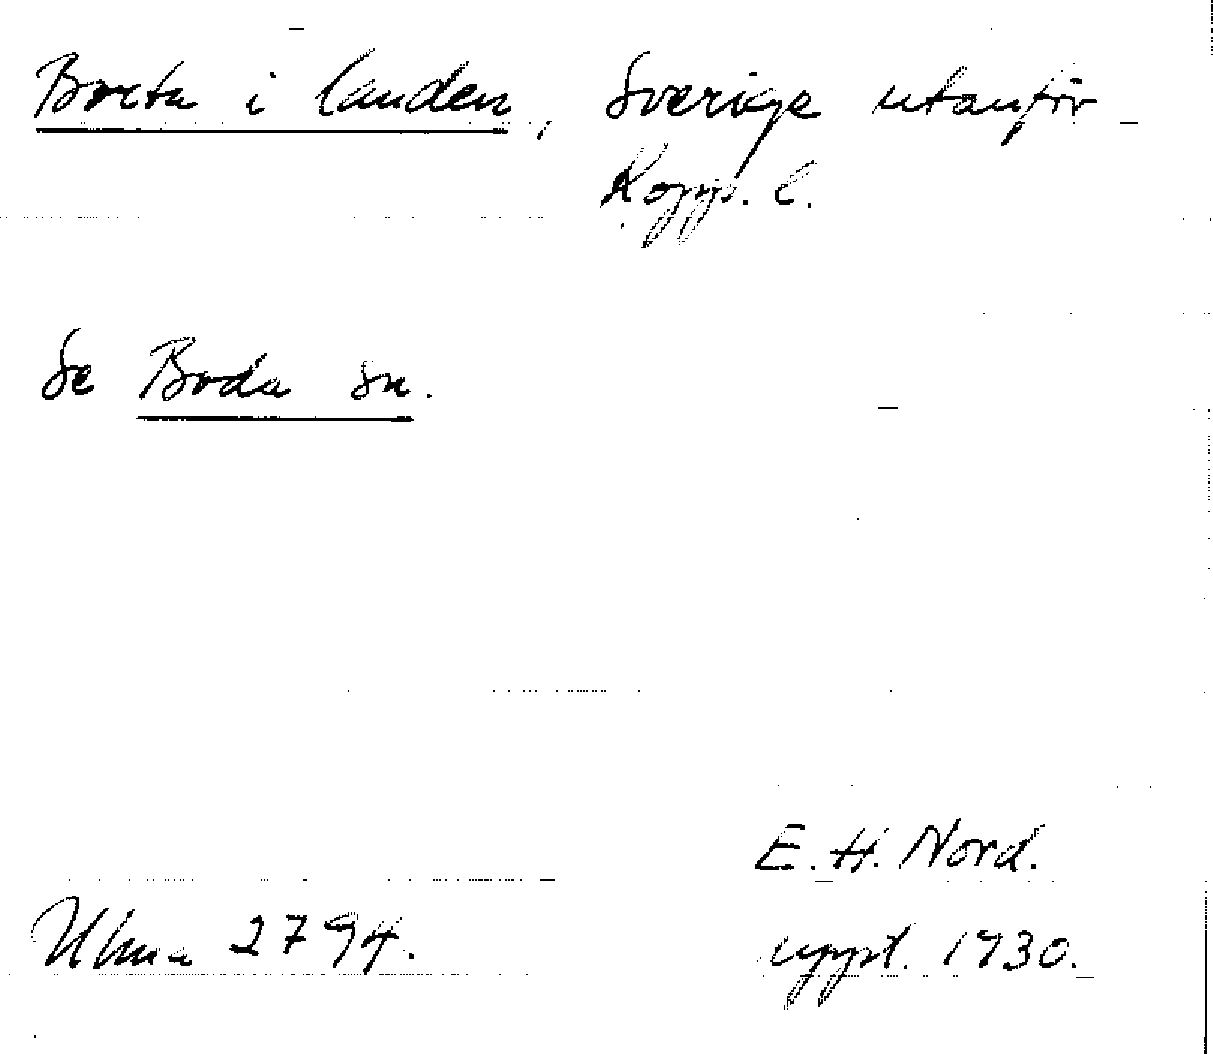 Borta i landen, Sverige utanför
Kopp. l.
Se Boda sn.
E. H. Nord.
Ulma 2794.
uppt. 1930.